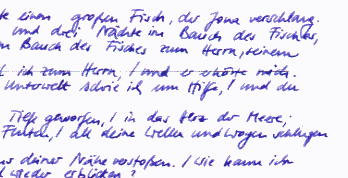 te einen großen Fisch, der Jona verschlang.
und drei Nächte im Bauch des Fisches,
m Bauch des Fisches zum Herrn, seinem
ich zum Herrn, / und er erhörte mich.
Unterwelt schrie ich um Hilfe, / und du
Tiefe geworfen, / in das Herz der Meere;
Fluten, / all deine Wellen und Wogen schlugen
aus deiner Nähe verstoßen. / Wie kann ich
wieder erblicken?